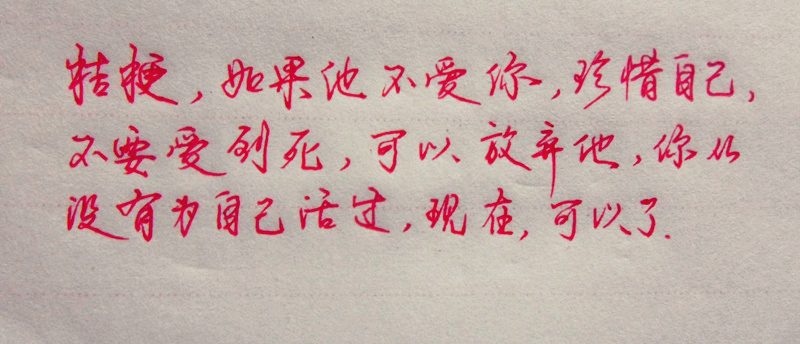 桔梗，如果他不爱你，珍惜自己，
不要爱到死，可以放弃他，你从
没有为自己活过，现在，可以了.